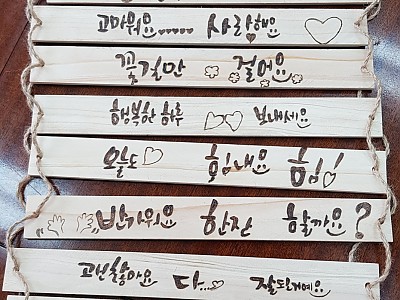 고마워요 사랑해요
꽃길만 걸어요
행복한 하루 보내세요
오늘도 힘내요 힘!
반가워요 한잔 할까요?
고민하지마요 다... 잘될거예요